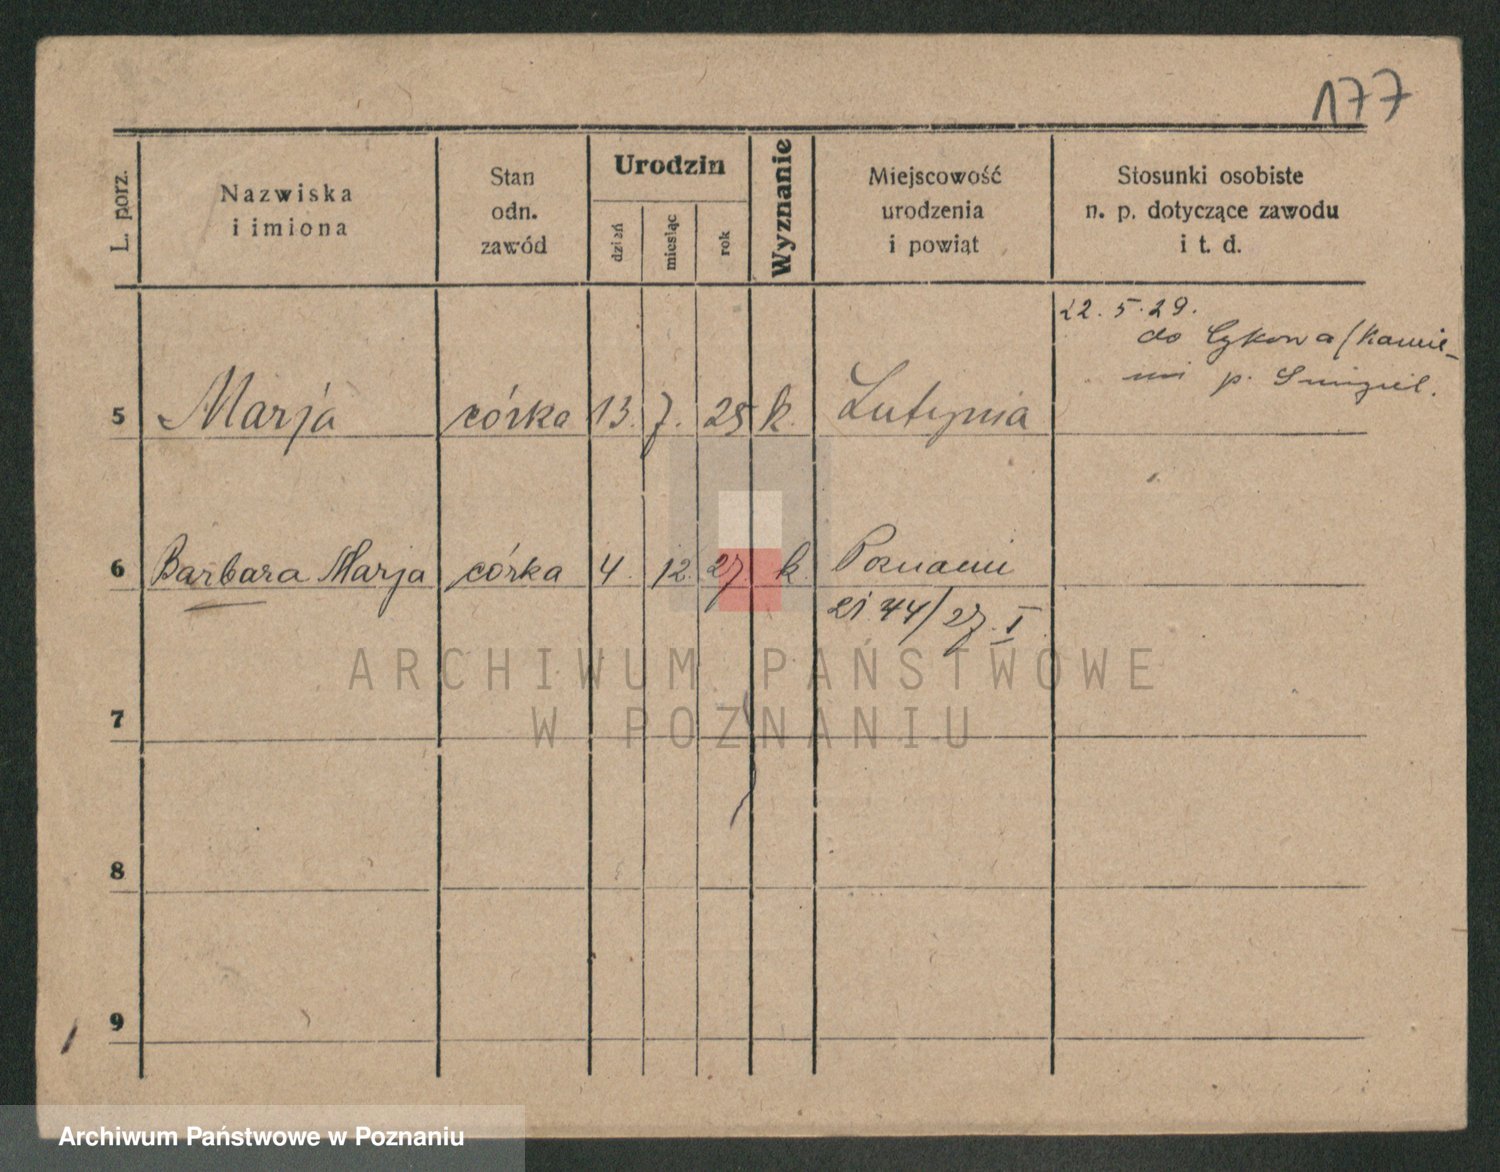 177
L. porz.
Nazwiska
i imiona
Stan
odn.
zawód
Urodzin
dzień
miesiąc
rok
Wyznanie
Miejscowość
urodzenia
i powiat
Stosunki osobiste
n. p. dotyczące zawodu
i t. d.
22. 5. 29.
do
p. Smigiel.
5 Marja córka 13. 7. 25 k. Lutynia
6 Barbara Marja córka 4. 12. 27 k. Poznań
44/27. I
7
8
9
ARCHIWUM PAŃSTWOWE
W POZNANIU
Archiwum Państwowe w Poznaniu